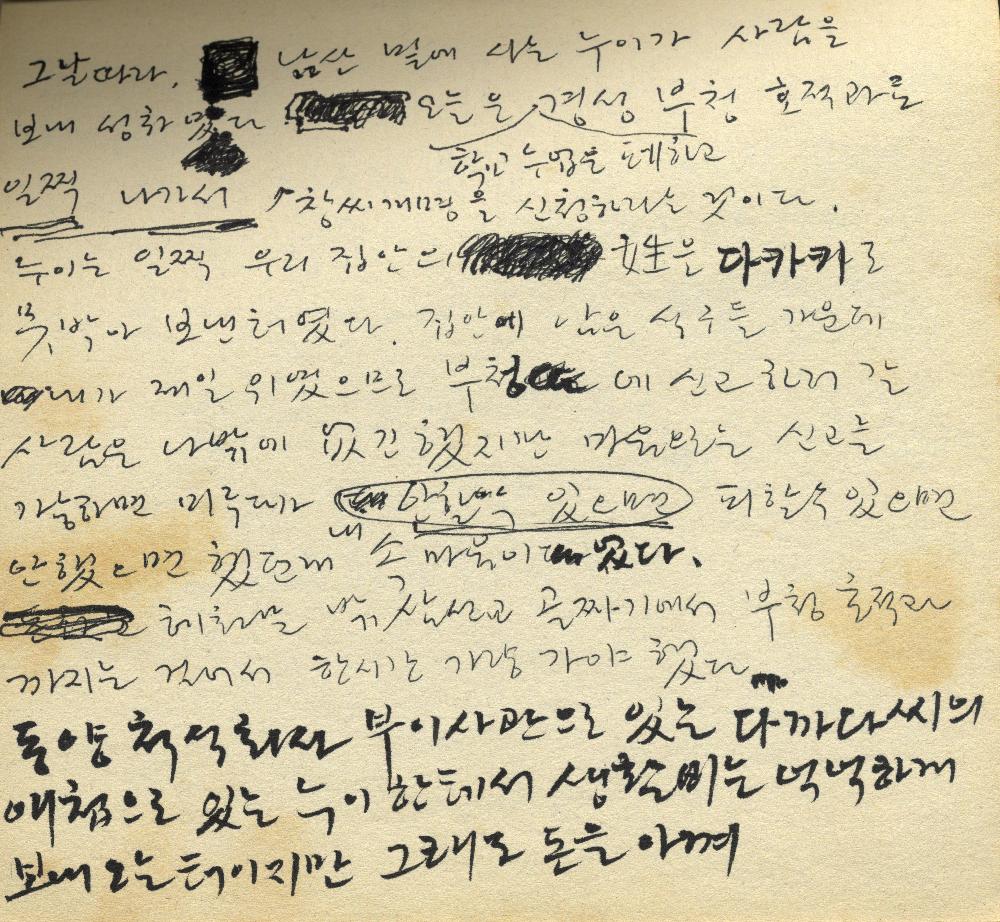 그날따라, 남산 밑에 사는 누이가 사람을
보내 성화였다 오늘은 경성 부청 호적과를
학교 수업을 폐하고
일찍 나가서 창씨개명을 신청하라는 것이다.
누이는 일찍 우리 집안의 姓은 다카키로
못박아 보낸터였다. 집안에 남은 식구들 가운데
내가 제일 위였으므로 부청에 신고하러 갈
사람은 나밖에 없긴 했지만 마음으로는 신고를
가능하면 미루데가 안할수 있으면 피할수 있으면
안했으면 했던게 내 소마음이였다.
혜화문 밖 삼선교 골짜기에서 부청 호적과
까지는 걸어서 한시간 가량 가야 했다
동양척식회사 부이사관으로 있는 다까다씨의
애첩으로 있는 누이한테서 생활비는 넉넉하게
보내오는터이지만 그래도 돈을 아껴